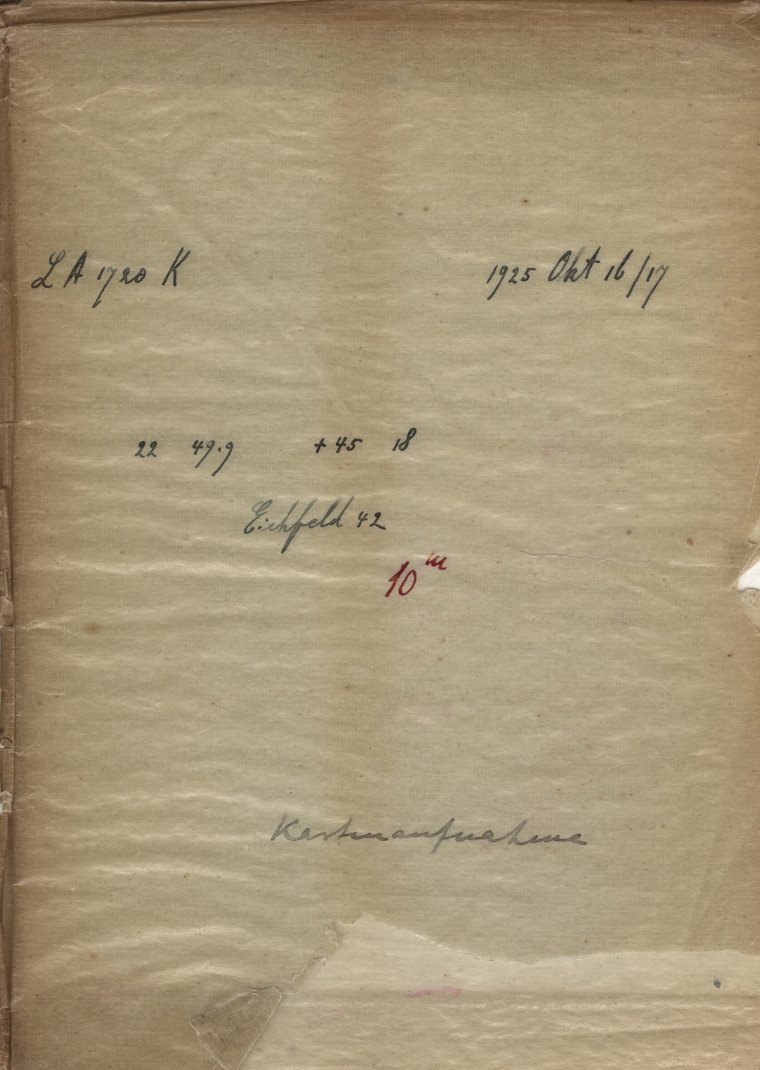 LA 1720 K 1925 Okt 16/17
22 49.9 +45 18
Eichfeld 42
10 m
Kartenaufnahme